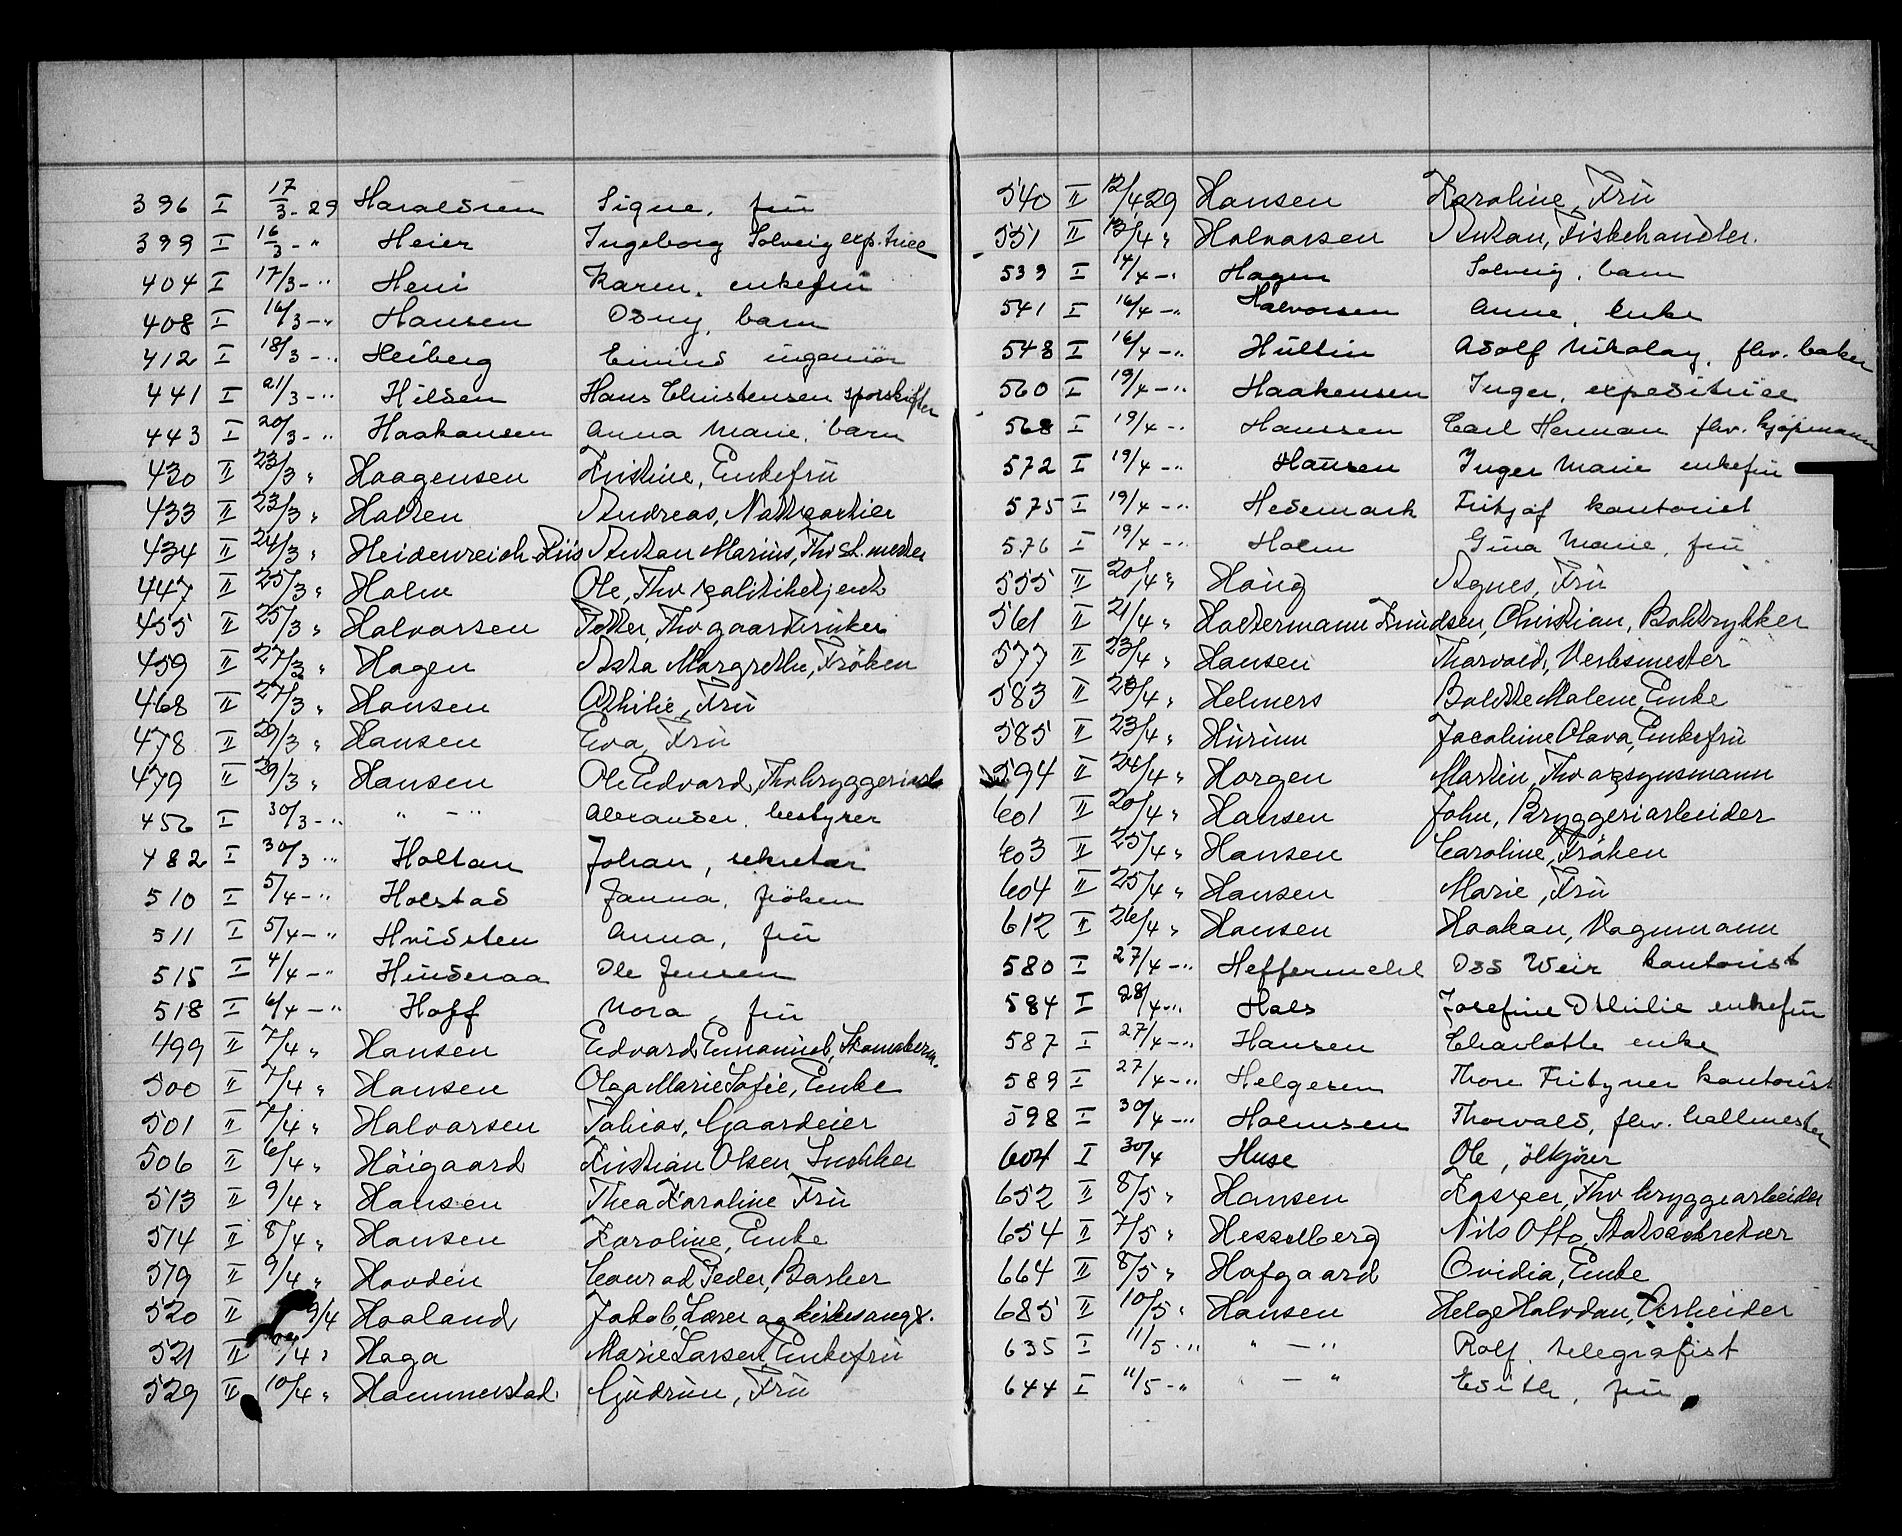 396 I 17/3-29 Haraldsen Signe, frü
399 I 16/3-" Heier Ingeborg Solveig exp.trice
404 I 17/3-" Heni Karen, enkefrü
408 I 16/3-" Hansen Osny, barn
412 I 18/3-" Heiberg Eivind ingeniör
441 I 21/3-" Hilsen Hans Christensen sporskifter
443 I 20/3-" Haakansen Anna Marie, barn
430 II 23/3 " Haagensen Kristine, Enkefrü
433 II 23/3 " Halsen Andreas, Nattportier
434 II 24/3 " Heidenreich Riis Anton Marius, Fhv st. mester
447 II 25/3 " Holm Ole, Fhv politibetjent
455 II 25/3 " Halvorsen Petter, Fhv gaardbruker
459 II 27/3 " Hagen Asta Margrethe, Fröken
468 II 27/3 " Hansen Othilie, Frü
478 II 29/3 " Hansen Eva, Frü
479 II 29/3 " Hansen Ole Edvard, Fhv bryggeriarb
456 I 30/3-" " - " Alexander, bestyrer
482 I 30/3 " Holtan Johan, sekretær
510 I 5/4-" Holstad Janna, fröken
511 I 5/4-" Hvidsten Anna, frü
515 I 4/4-" Hinderaa Ole Jensen
518 I 6/4-" Hoff Nora, frü
499 II 7/4 " Hansen Edvard Emanuel, Skomakerm.
500 II 7/4 " Hansen Olga Marie Sofie, Enke
501 II 7/4 " Halvorsen Tobias, Gaardeier
506 II 6/4 " Höigaard Kristian Olsen, Snekker
513 II 9/4 " Hansen Thea Karoline Frü
514 II 8/4 " Hansen Karoline, Enke
519 II 9/4 " Hovden Conrad Peder, Barber
520 II 9/4 Haaland Jakob, Lærer og kirkesang.
521 II /4 " Haga Marie Larsen, Enkefrü
529 II 10/4 " Hammerstad Gudrun, Frü
540 II 12/4 29 Hansen Karoline, Frü
551 II 13/4 " Halvorsen Anton, Fiskehandler.
539 I 14/4-" Hagen Solveig, barn
541 I 16/4-" Halvorsen Anne, enke
548 I 16/4-" Hultin Adolf Nikolay, fhv. baker
560 I 19/4-" Haakensen Inger, expeditrice
568 I 19/4-" Hansen Carl Herman fhv. kjøpmann
572 I 19/4-" Hansen Inger Marie enkefrü
575 I 19/4-" Hedemark Fritjof kontorist
576 I 19/4-" Holm Gina Marie, frü
555 II 20/4 " Haug Agnes, Frü
561 II 21/4 " Holtermann Knudsen, Christian, Boktrykker
577 II 23/4 " Hansen Thorvald, Verksmester
583 II 23/4 " Helmers Bolette Malene, Enke
585 II 23/4 " Hurum Jacobine Olava, Enkefrü
594 II 24/4 " Horgen Martin, Fhv opsynsmann
601 II 20/4 " Hansen John, Bryggeriarbeider
603 II 25/4 " Hansen Caroline, Fröken
604 II 25/4 " Hansen Marie, Frü
612 II 26/4 " Hansen Haakon, Vognmann
580 I 27/4-" Heffermehl Odd Weir kontorist
584 I 28/4-" Hals Josefine Othilie enkefrü
587 I 27/4-" Hansen Charlotte enke
589 I 27/4-" Helgesen Thore Fritzner kontorist
598 I 30/4-" Holmsen Thorvald, fhv. hallmester
604 I 30/4 Huse Ole, ölkjörer
652 II 8/5 " Hansen Kasper, Fhv bryggearbeider
654 II 7/5 " Hesselberg Nils Otto, Statssekretær
664 II 8/5 " Hofgaard Ovidia, Enke
685 II 10/5 " Hansen Helge Halvdan, Arbeider
635 I 11/5 -" " - " Rolf, telegrafist
644 I 11/5-" - " Edith, frü